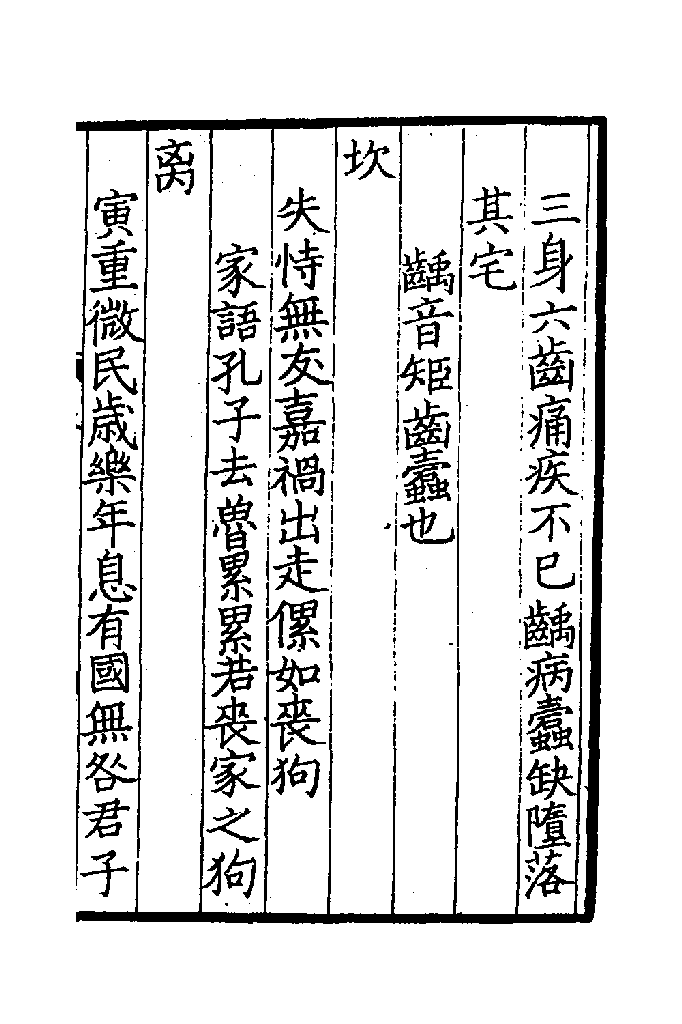 三身六齒痛疾不已齲病蠹缺墮落
其宅
齲音矩齒蠹也
坎
失恃無友嘉禍出走傫如喪狗
家語孔子去魯累累若喪家之狗
离
寅重微民歲樂年息有國無咎君子